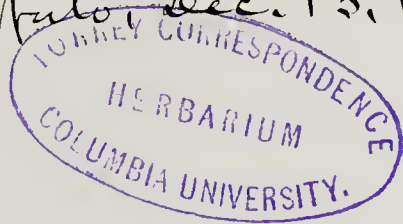 Dec. 13,
TORREY CORRESPONDENCE
HERBARIUM
COLUMBIA UNIVERSITY.